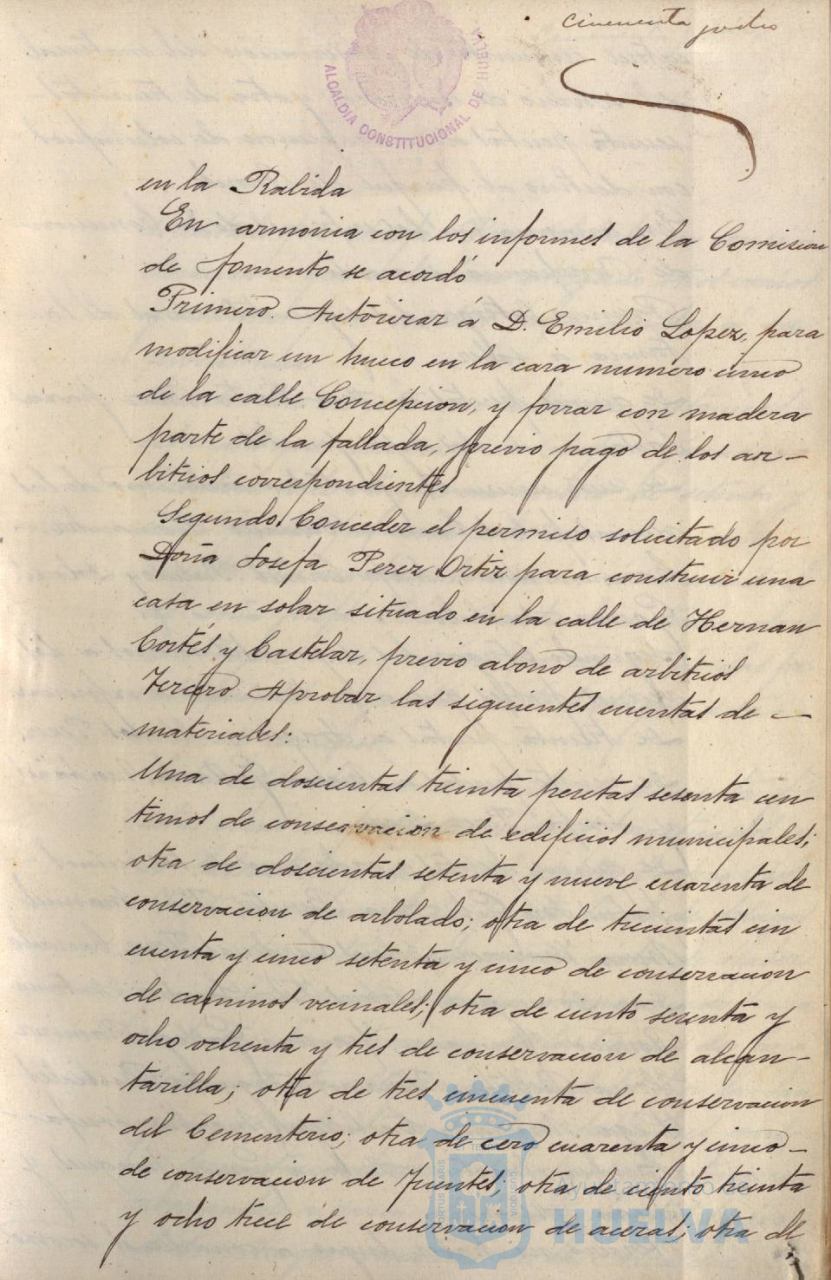 cincuenta y ocho
ALCALDIA CONSTITUCIONAL DE HUELVA
en la Rabida
En armonia con los informes de la Comision
de fomento se acordó
Primero. Autorizar á D. Emilio Lopez, para
modificar un hueco en la casa numero cinco
de la calle Concepcion, y forrar con madera
parte de la fallada, previo pago de los ar-
bitrios correspondientes
Segundo. Conceder el permiso solicitado por
Doña Josefa Perez Ortiz para construir una
casa en solar situado en la calle de Hernan
Cortés y Castelar, previo abono de arbitrios
Tercero Aprobar las siguientes cuentas de -
materiales:
Una de doscientas treinta pesetas sesenta cen
timos de conservacion de edificios municipales;
otra de doscientas setenta y nueve cuarenta de
conservacion de arbolado; otra de trescientas cin
cuenta y cinco setenta y cinco de conservacion
de caminos vecinales; otra de ciento sesenta y
ocho ochenta y tres de conservacion de alcan-
tarilla; otra de tres cincuenta de conservacion
del Cementerio; otra de cero cuarenta y cinco -
de conservacion de fuentes; otra de ciento treinta
y ocho trece de conservacion de aceras; otra de
HUELVA